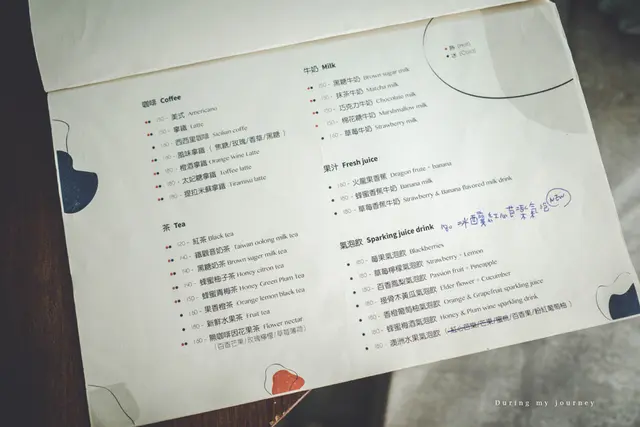 咖啡 Coffee
美式 Americano
拿鐵 Latte
西西里咖啡 Sicilian coffe
風味拿鐵 ( 焦糖/玫瑰/香草/黑糖 )
橙酒拿鐵 Orange Wine Latte
太妃糖拿鐵 Toffee latte
提拉米蘇拿鐵 Tiramisu latte
茶 Tea
紅茶 Black tea
鐵觀音奶茶 Taiwan oolong milk tea
黑糖奶茶 Brown suger milk tea
蜂蜜柚子茶 Honey citron tea
蜂蜜青梅茶 Honey Green Plum Tea
果香橙茶 Orange lemon black tea
新鮮水果茶 Fruit tea
開咖啡因花果茶 Flower nectar
(百香芒果/玫瑰檸檬/草莓薄荷)
牛奶 Milk
黑糖牛奶 Brown sugar milk
抹茶牛奶 Matcha milk
巧克力牛奶 Chocolate milk
棉花糖牛奶 Marshmallow milk
草莓牛奶 Strawberry milk
果汁 Fresh juice
火龍果香蕉 Dragon fruit - banana
蜂蜜香蕉牛奶 Banana milk
草莓香蕉牛奶 Strawberry & Banana flavored milk drink
氣泡飲 Sparking juice drink
NEW
莓果氣泡飲 Blackberries
草莓檸檬氣泡飲 Strawberry - Lemon
百香鳳梨氣泡飲 Passion fruit - Pineapple
接骨木黃瓜氣泡飲 Elder flower - Cucumber
香橙葡萄柚氣泡飲 Orange & Grapefruit sparkling juice
蜂蜜梅酒氣泡飲 Honey & Plum wine sparkling drink
澳洲水果氣泡飲 百香果/粉紅葡萄柚 )
熱
冰
During my journey